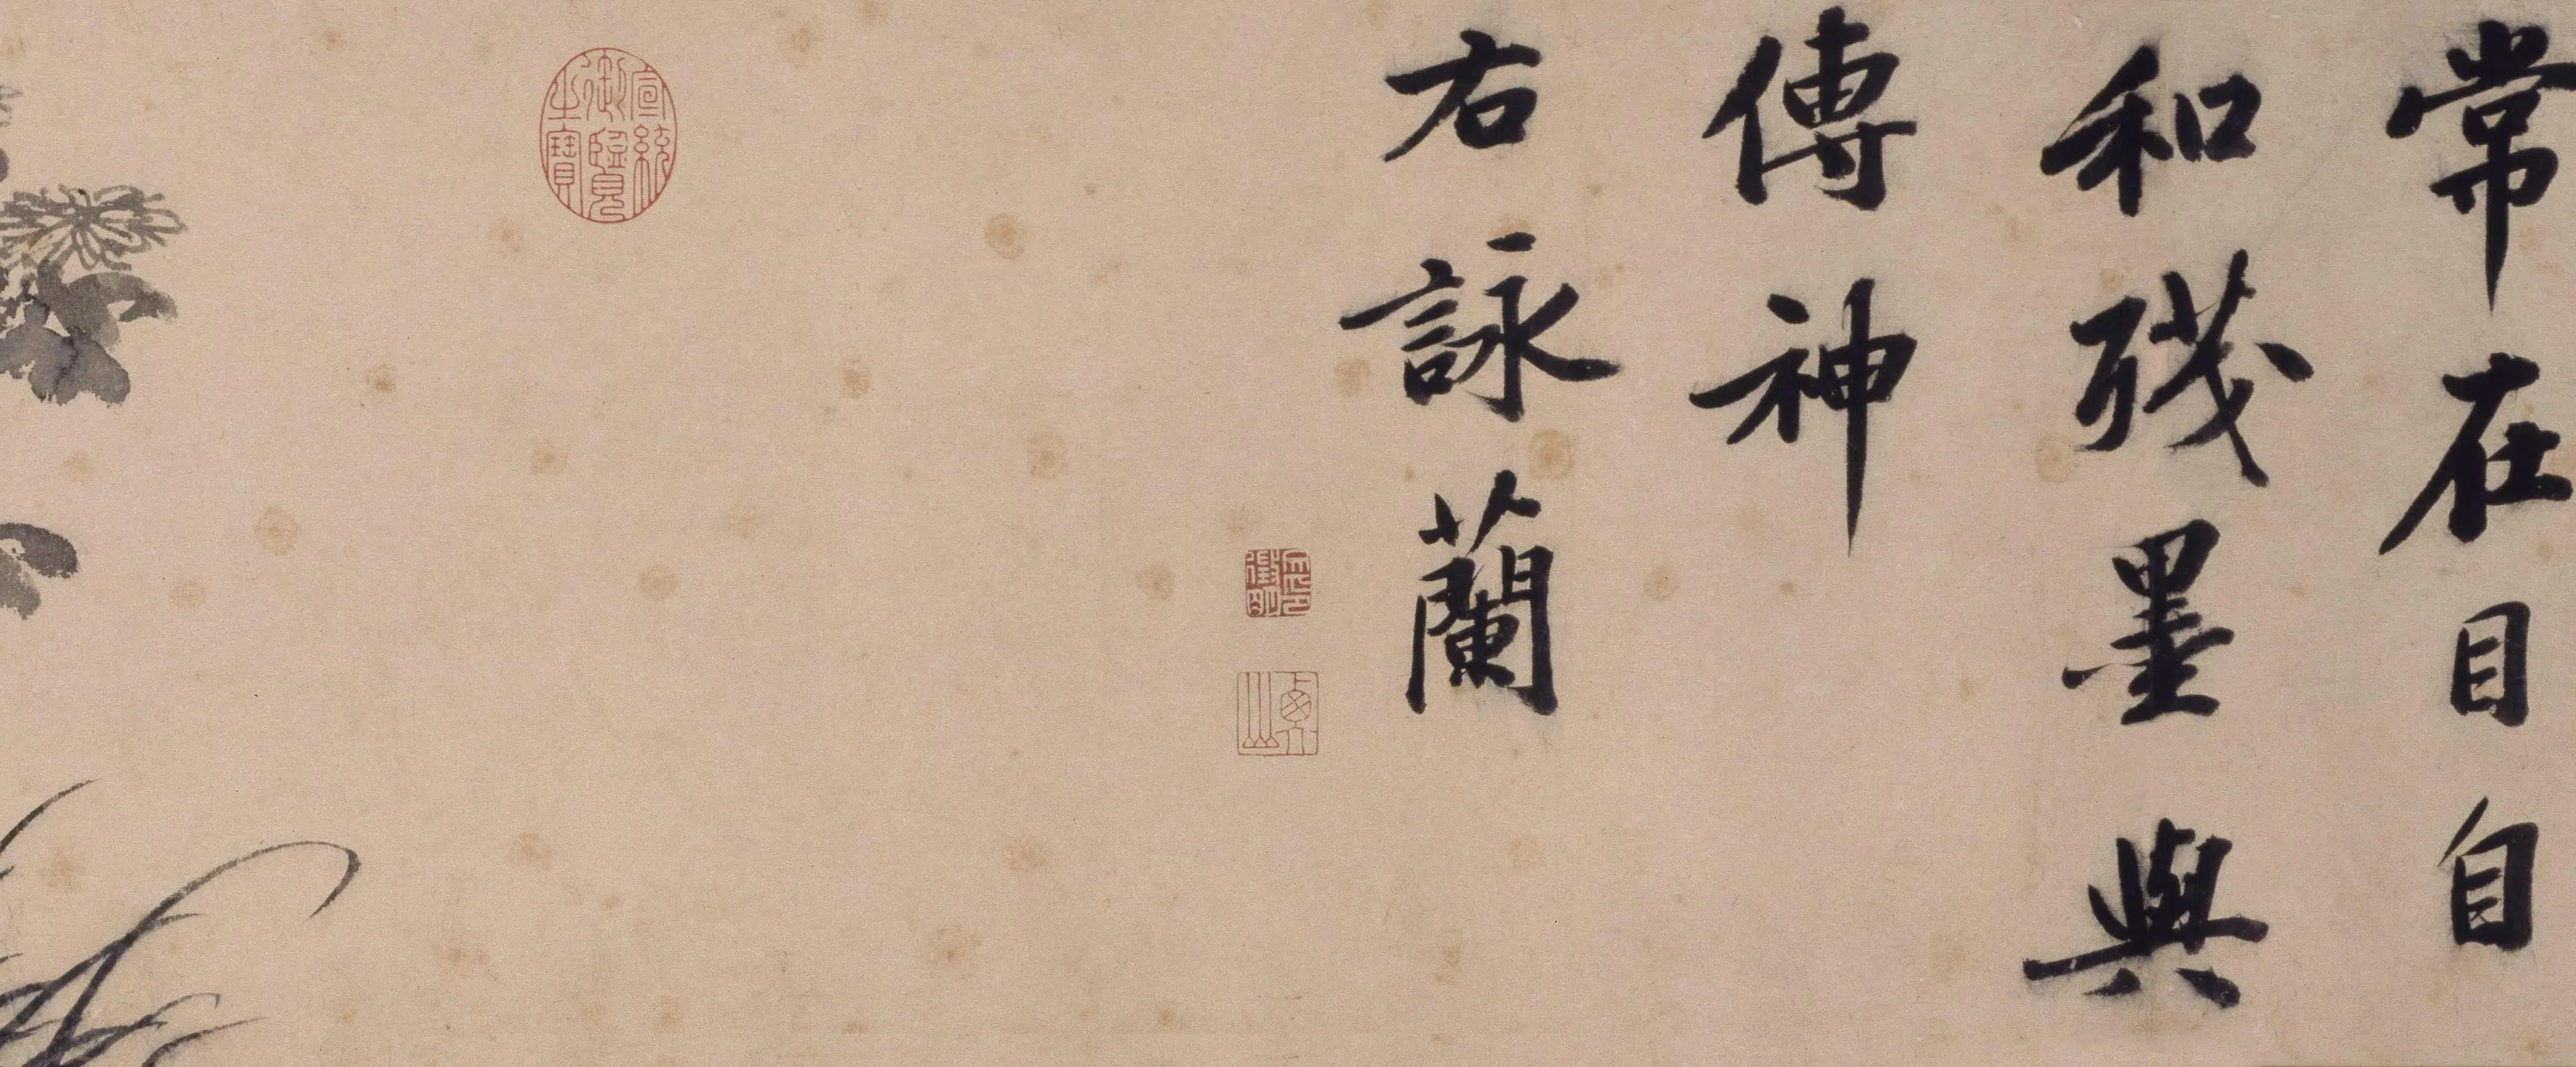 常在目自
和殘墨與
傳神
右詠蘭
宣統御覽之寶
衡山